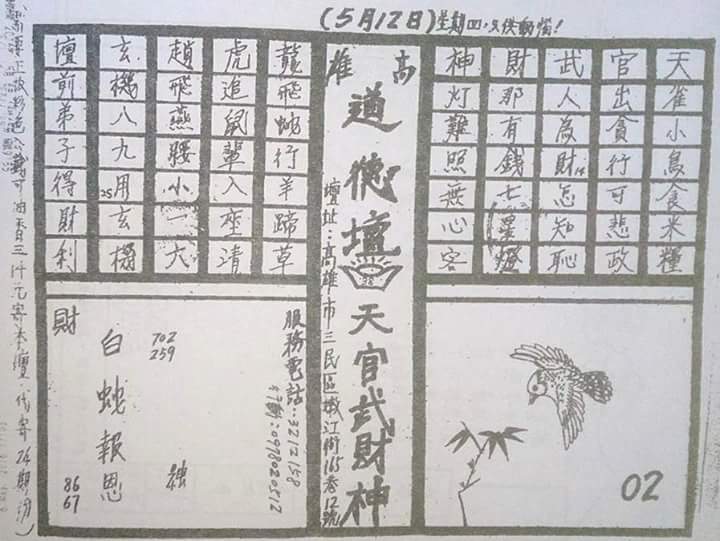 (5月12日)星期四,只供動惱!
天雀小鳥食米糧
官出貪行可悲政
武人為財怎知恥
14
財那有錢七星燈
神灯難照無心客
高雄
道德壇 天官武財神
壇址:高雄市三民區嫩江街165巷12號
龍飛 行羊蹄草
虎追鼠輩入座清
趙飛燕腰小一六
玄機八九用玄機
25
壇前弟子得財利
02
服務電話:3212158
行動:0978020512
702
259
白蛇報恩
財
86
67
油香三仟元寄本壇,代寄24期份)